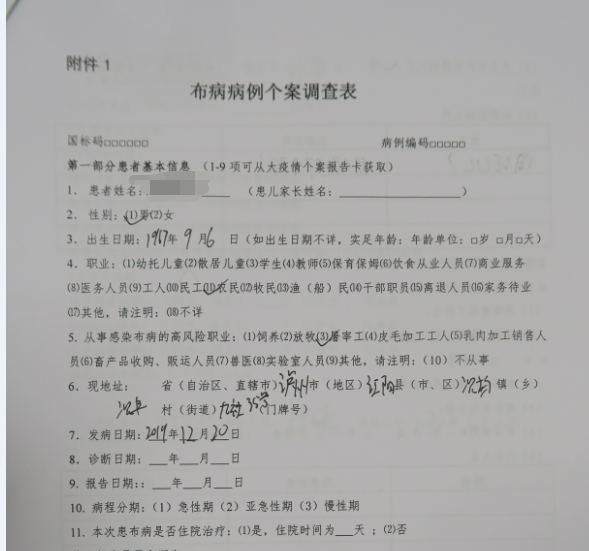 附件 1
布病病例个案调查表
国标码□□□□□□ 病例编码□□□□□
第一部分患者基本信息 (1-9 项可从大疫情个案报告卡获取)
1. 患者姓名: (患儿家长姓名: )
2. 性别: (1)男(2)女
3. 出生日期: 1967年 9 月 6 日(如出生日期不详, 实足年龄: 年龄单位: □岁 □月□天)
4. 职业: (1)幼托儿童(2)散居儿童(3)学生(4)教师(5)保育保姆(6)饮食从业人员(7)商业服务
(8)医务人员(9)工人(10)民工(11)农民(12)牧民(13)渔(船)民(14)干部职员(15)离退人员(16)家务待业
(17)其他, 请注明: (18)不详
5. 从事感染布病的高风险职业: (1)饲养(2)放牧(3)屠宰工(4)皮毛加工工人(5)乳肉加工销售人
员(6)畜产品收购、贩运人员(7)兽医(8)实验室人员(9)其他, 请注明: (10) 不从事
6. 现地址: 省(自治区、直辖市)泸州市(地区)江阳县(市、区) 镇(乡)
村(街道) 35号(门牌号)
7. 发病日期: 2019年12月20日
8. 诊断日期: ___年___月___日
9. 报告日期:: ___年___月___日
10. 病程分期: (1) 急性期 (2) 亚急性期 (3) 慢性期
11. 本次患布病是否住院治疗: (1)是, 住院时间为___天 ; (2)否